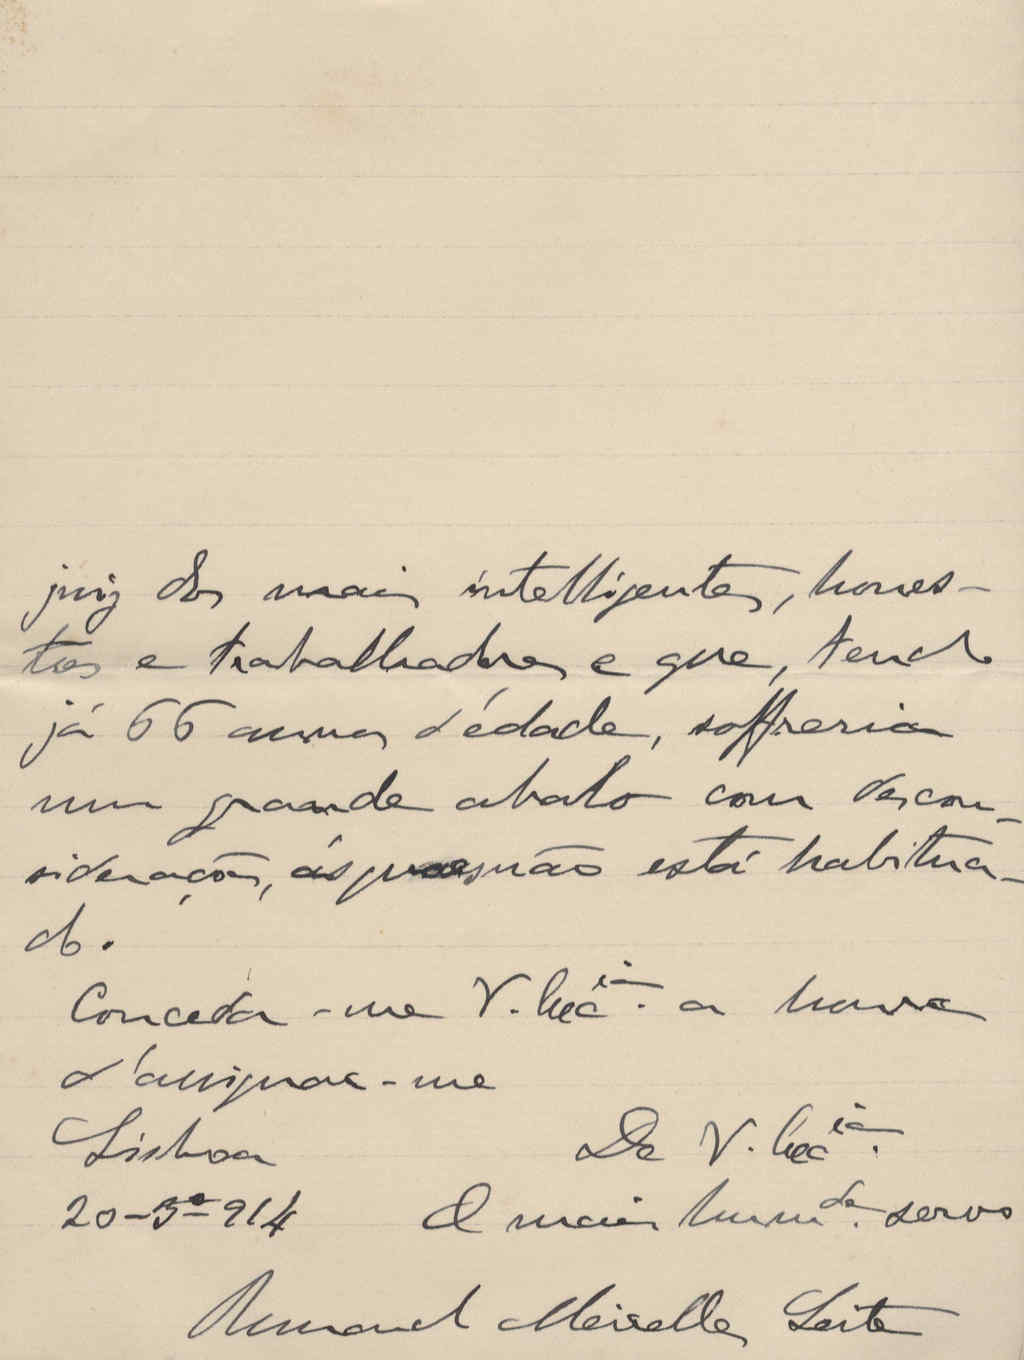 juiz dos mais intelligentes, hones-
tos e trabalhadores e que, tendo
já 66 annos d'édade, soffreria
um grande abalo com descon-
siderações, ás quaes não está habitua-
do.
Conceda-me V. Exc.ia a honra
d'assignar-me
Lisboa De V. Exc.ia
20-3º-914 O mais hum.de servo
Meirelles Leite